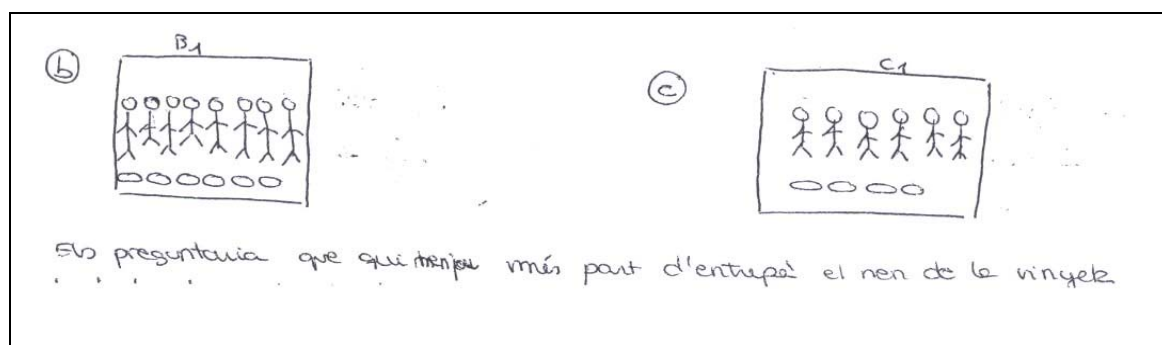 B1
b
C1
c
Els preguntaria que qui menja més part d'entrepà el nen de la vinyeta